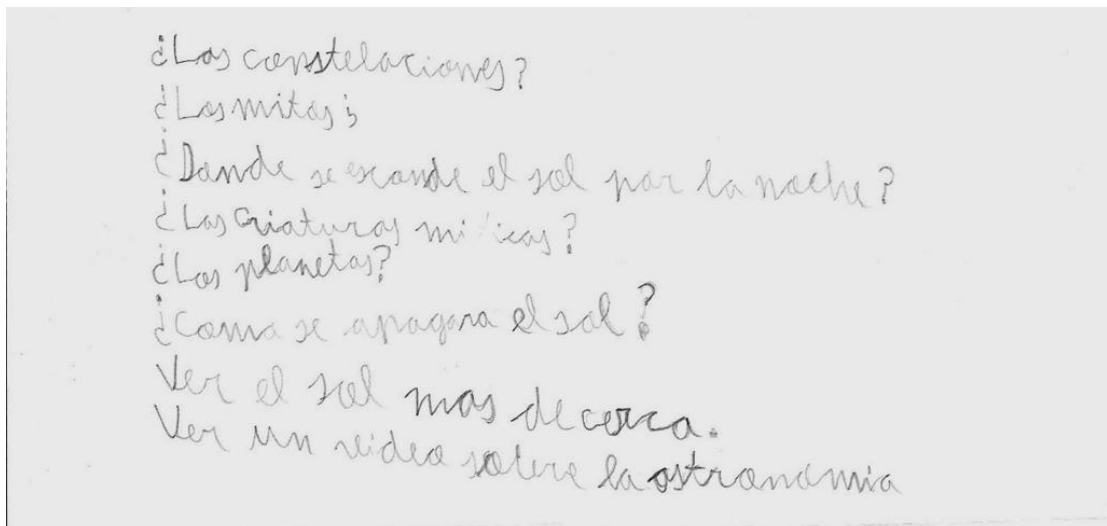 ¿Las constelaciones?
¿Los mitos¿
¿Donde se esconde el sol por la noche?
¿Las criaturas miticas?
¿Los planetas?
¿Como se apagara el sol?
Ver el sol mas de cerca.
Ver un video sobre la astronomia